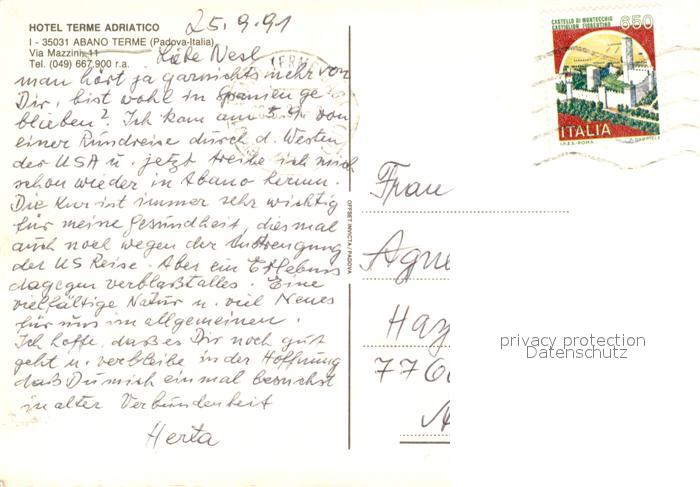 HOTEL TERME ADRIATICO
25.9.91
I - 35031 ABANO TERME (Padova-Italia)
Via Mazzini, 11
Tel. (049) 667.900 r.a.
Liebe Nesl
man hört ja garnichts mehr von
Dir, bist wohl in Spanien ge
blieben? Ich kam am 5.9. von
einer Rundreise durch d. Westen
der USA u. jetzt treibe ich mich
schon wieder in Abano herum.
Die Kur ist immer sehr wichtig
für meine Gesundheit, diesmal
auch noch wegen der Anstrengung
der US Reise. Aber ein Erlebnis
dagegen verblaßt alles. Eine
vielfältige Natur u. viel Neues
für uns im allgemeinen.
Ich hoffe, daß es Dir noch gut
geht u. verbleibe in der Hoffnung
daß Du mich einmal besuchst
in alter Verbundenheit
Herta
OFFSET INVICTA / PADOVA
CASTELLO DI MONTECCHIO
CASTIGLION FIORENTINO
650
ITALIA
I.P.Z.S.-ROMA
TERME
Frau
Agne
Hay
776
privacy protection
Datenschutz